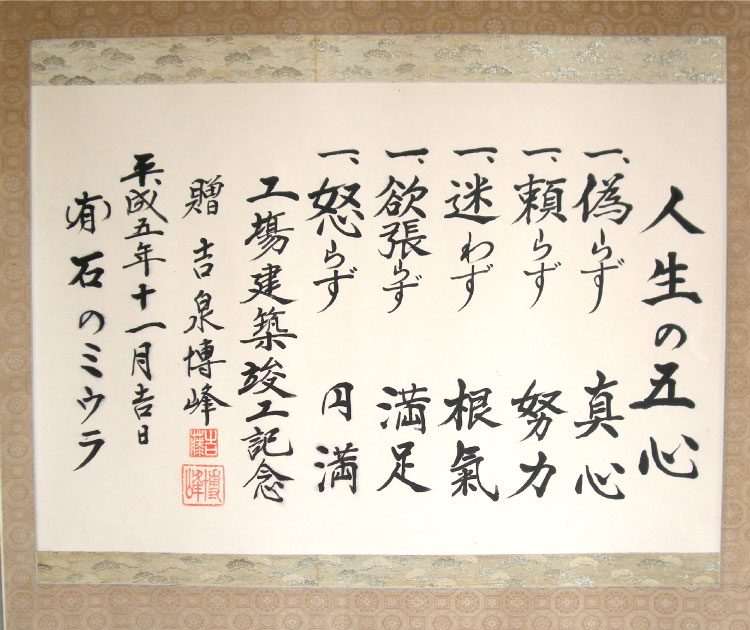 人生の五心
一、偽らず 真心
一、頼らず 努力
一、迷わず 根氣
一、欲張らず 満足
一、怒らず 円満
工場建築竣工記念
贈 吉泉博峰
吉藤
博峰
平成五年十一月吉日
(有)石のミウラ